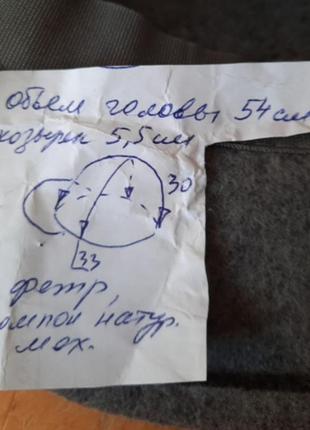 объем головы 54 см
козырек 5,5 см
30
33
фетр,
помпон натур.
мех.